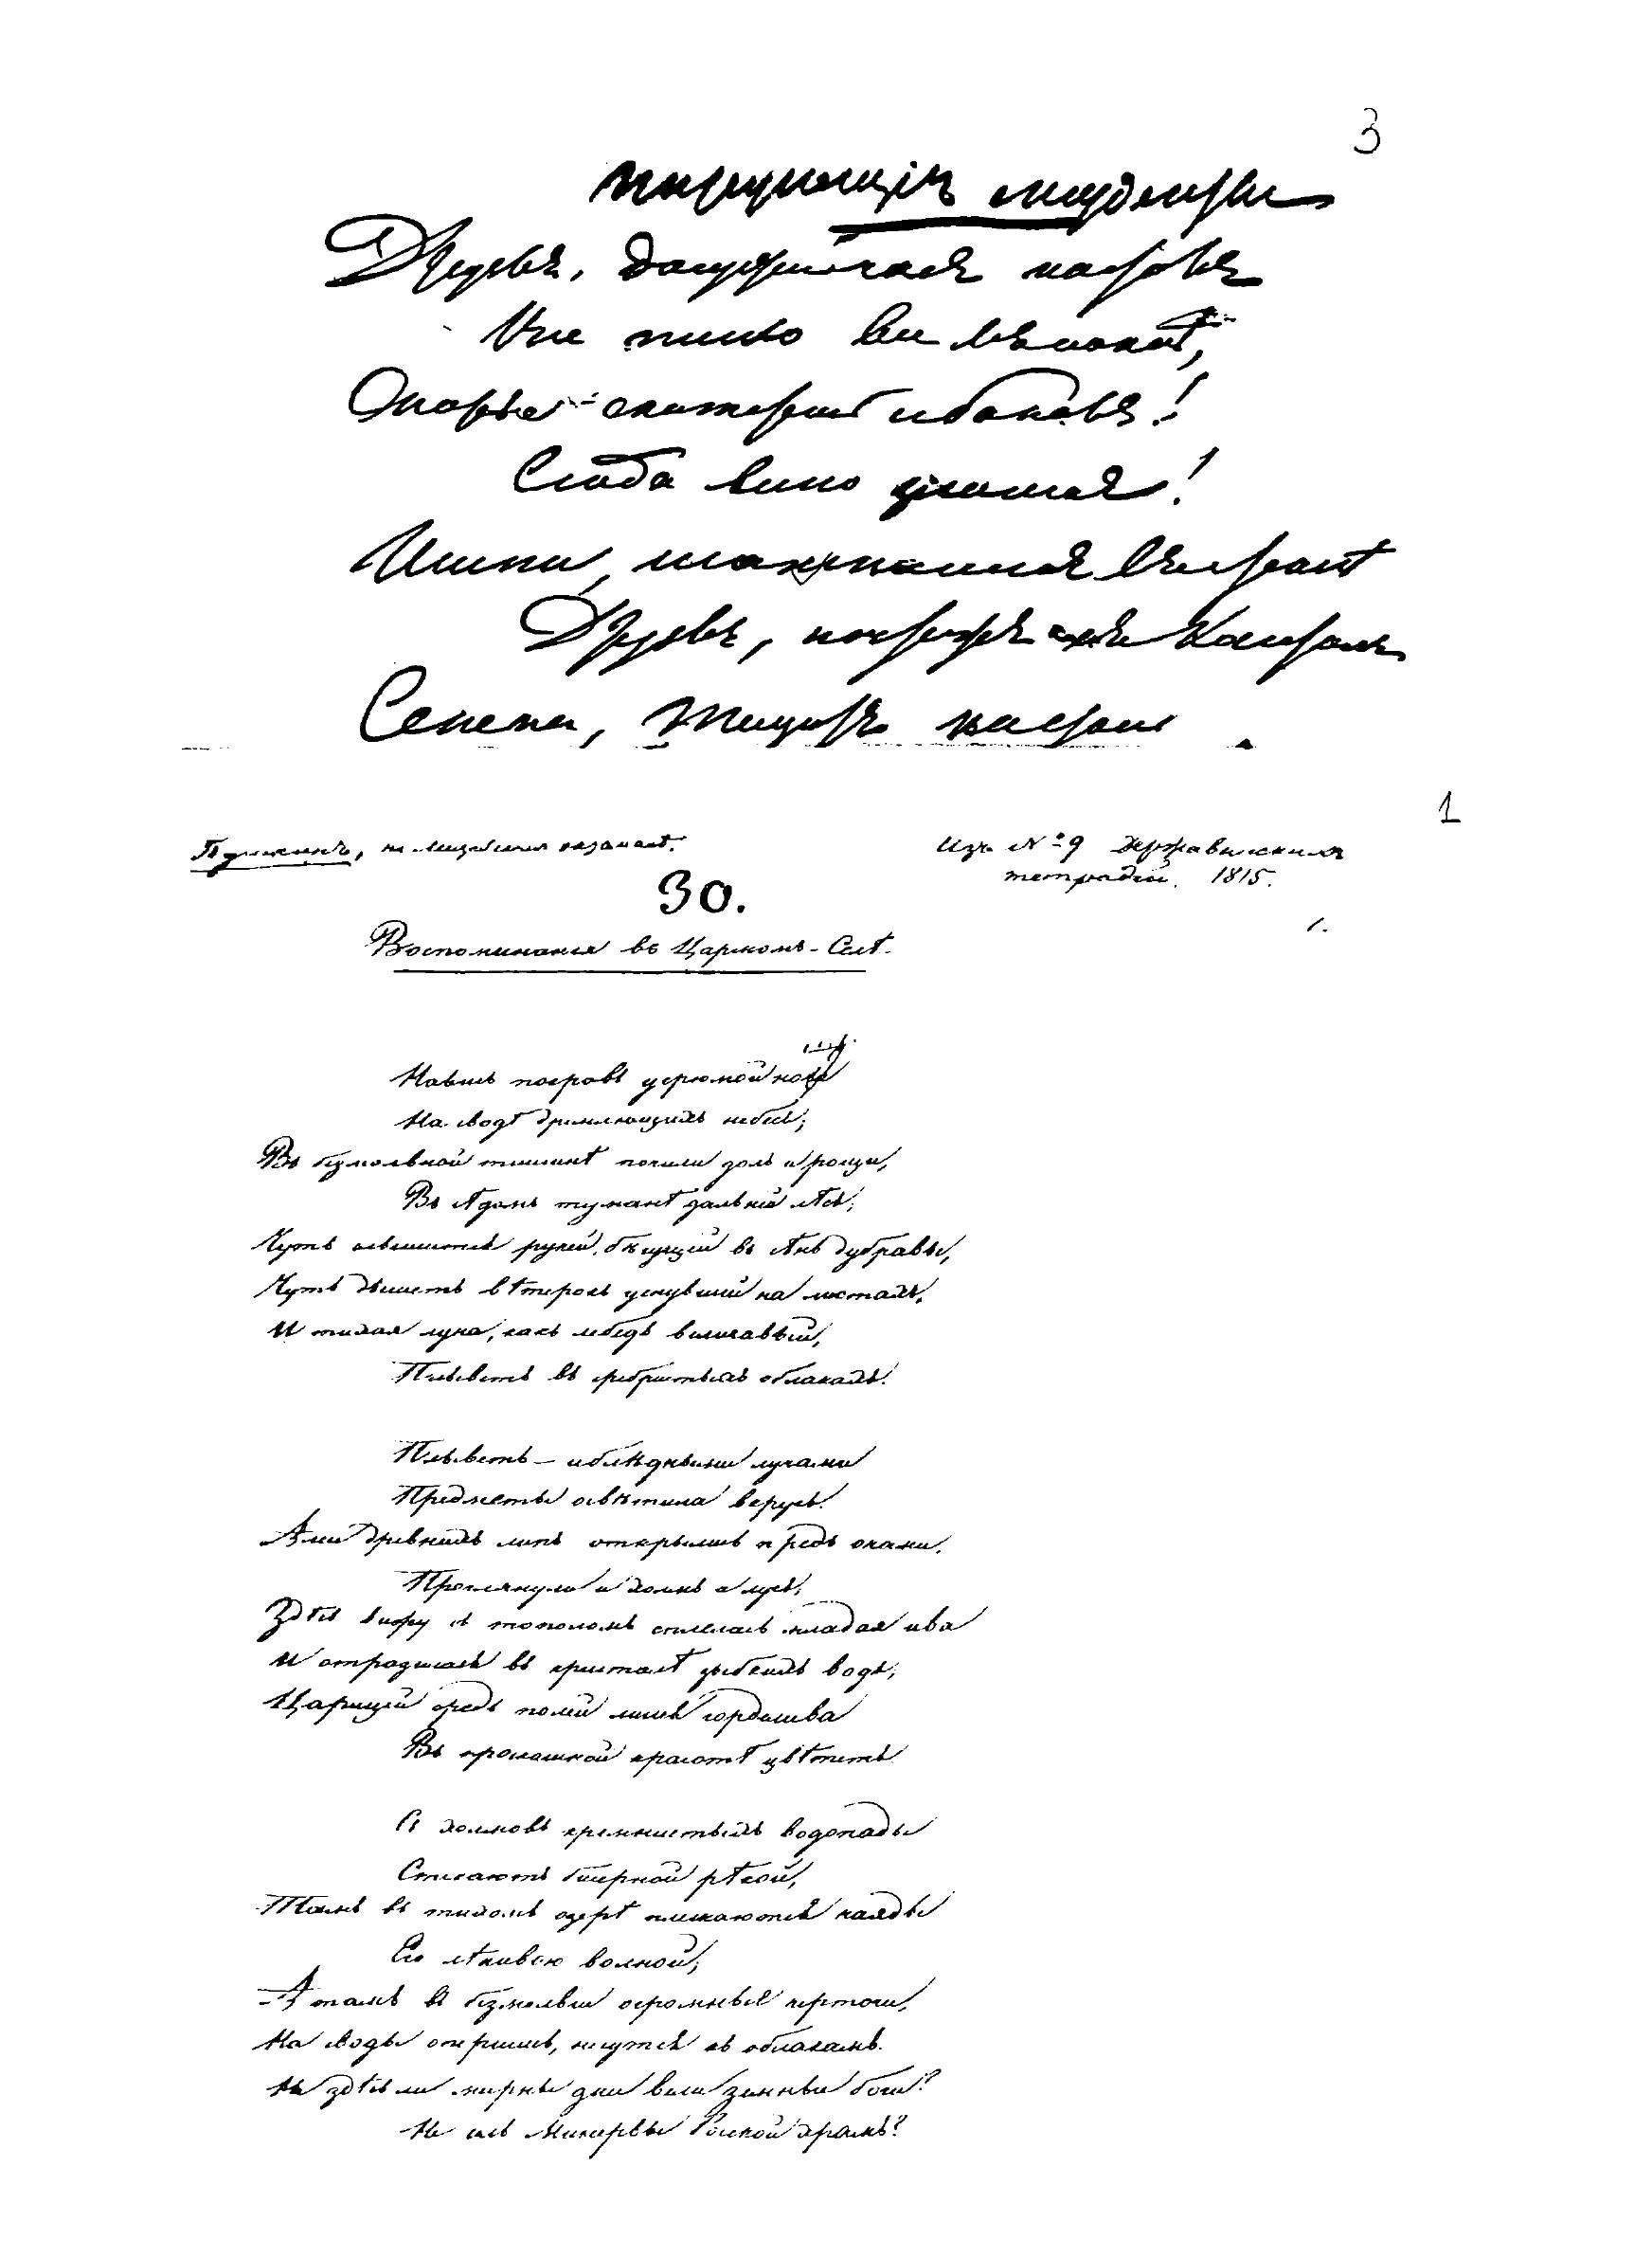 3
пирующiе студенты
Друзья, досужный часъ насталъ
Все тихо, все въ покоѣ;
Скорѣе скатерть и бокалъ!
Сюда вино златое!
Шипи, шампанское въ стеклѣ
Друзья, почто же съ Кантомъ
Сенека, Тацитъ на столѣ
1
Пушкинъ, на Лицейскомъ экзаменѣ.
Изъ №9 Державинскихъ
тетрадей. 1815.
30.
1.
Воспоминанiя въ Царскомъ-Селѣ.
Нависъ покровъ угрюмой нощи
На сводѣ дремлющихъ небесъ;
Въ безмолвной тишинѣ почили долъ и рощи,
Въ сѣдомъ туманѣ дальнiй лѣсъ;
Чуть слышится ручей, бѣгущiй въ сѣнь дубравы,
Чуть дышетъ вѣтерокъ уснувшiй на листахъ,
И тихая луна, какъ лебедь величавый,
Плыветъ въ сребристыхъ облакахъ.
Плыветъ – и блѣдными лучами
Предметы освѣтила вкругъ.
Аллеи древнихъ липъ открылись предъ очами,
Проглянули и холмъ и лугъ;
Здѣсь вижу съ тополомъ сплелась младая ива
И отразилася въ кристалѣ зыбкихъ водъ;
Царицей средь полей лилея горделива
Въ роскошной красотѣ цвѣтетъ.
Съ холмовъ кремнистыхъ водопады
Стекаютъ бисерной рѣкой,
Тамъ въ тихомъ озерѣ плескаются наяды
Его лѣнивою волной;
А тамъ въ безмолвiи огромные чертоги,
На своды опершись, несутся къ облакамъ.
Не здѣсь ли мирны дни вели земные боги?
Не се ль Минервы Росской храмъ?